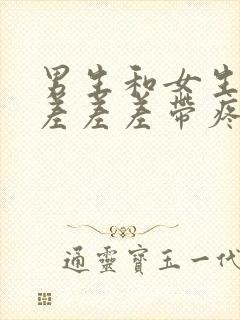 男生和女生
差差差带疼
通靈寶玉一代